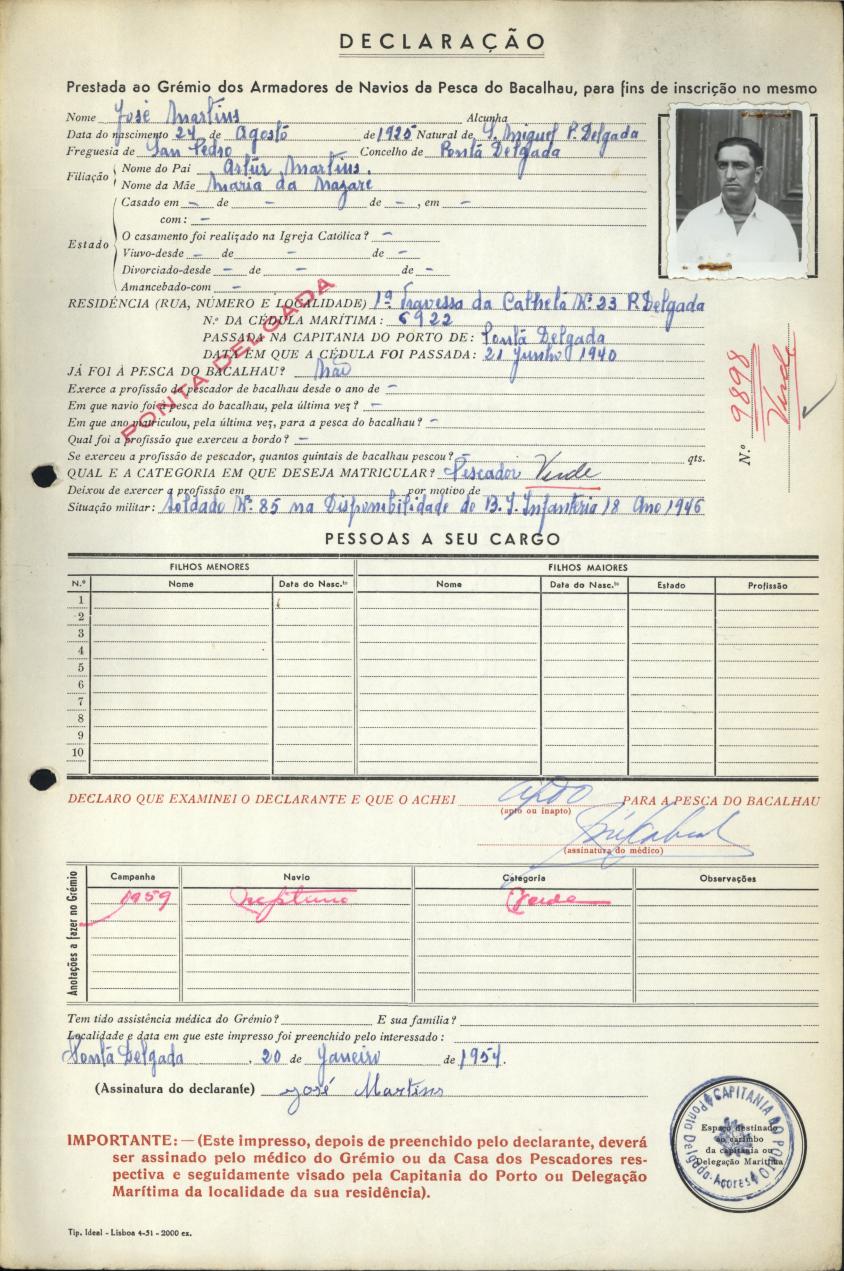 DECLARAÇÃO
Prestada ao Grémio dos Armadores de Navios da Pesca do Bacalhau, para fins de inscrição no mesmo
Nome José Martins Alcunha
Data do nascimento 24 de Agosto de 1925 Natural de S. Miguel P. Delgada
Freguesia de San Pedro Concelho de Ponta Delgada
Filiação Nome do Pai Artur Martins.
Nome da Mãe Maria da Nazaré
Estado
Casado em - de - de -, em -
com: -
O casamento foi realizado na Igreja Católica? -
Viuvo-desde - de - de -
Divorciado-desde - de - de -
Amancebado-com -
PONTA DELGADA
RESIDÊNCIA (RUA, NÚMERO E LOCALIDADE) 1ª Travessa da Nº 23 P. Delgada
N.º DA CÉDULA MARÍTIMA: 6922
PASSADA NA CAPITANIA DO PORTO DE: Ponta Delgada
DATA EM QUE A CÉDULA FOI PASSADA: 21 Junho 1940
JÁ FOI À PESCA DO BACALHAU? Não
Exerce a profissão de pescador de bacalhau desde o ano de -
Em que navio foi à pesca do bacalhau, pela última vez? -
Em que ano matriculou, pela última vez, para a pesca do bacalhau? -
Qual foi a profissão que exerceu a bordo? -
Se exerceu a profissão de pescador, quantos quintais de bacalhau pescou? - qts.
QUAL E A CATEGORIA EM QUE DESEJA MATRICULAR? Pescador Verde
Deixou de exercer a profissão em por motivo de
Situação militar: Soldado Nº 85 na Disponibilidade do B. I. Infantéria 18 Ano 1946
N.º 9898
Verde
PESSOAS A SEU CARGO
FILHOS MENORES FILHOS MAIORES
N.º Nome Data do Nasc.to Nome Data do Nasc.to Estado Profissão
1
2
3
4
5
6
7
8
9
10
DECLARO QUE EXAMINEI O DECLARANTE E QUE O ACHEI apto PARA A PESCA DO BACALHAU
(apto ou inapto)
(assinatura do médico)
Anotações a fazer no Grémio
Campanha Navio Categoria Observações
1959 Neptuno Verde
Tem tido assistência médica do Grémio? E sua família?
Localidade e data em que este impresso foi preenchido pelo interessado:
Ponta Delgada, 20 de Janeiro de 1954.
(Assinatura do declarante) José Martins
IMPORTANTE: — (Este impresso, depois de preenchido pelo declarante, deverá
ser assinado pelo médico do Grémio ou da Casa dos Pescadores res-
pectiva e seguidamente visado pela Capitania do Porto ou Delegação
Marítima da localidade da sua residência).
CAPITANIA DO PORTO
Ponta Delgada-Açores
Espaço destinado
ao carimbo
da capitania ou
Delegação Marítima
Tip. Ideal - Lisboa 4-51 - 2000 ex.